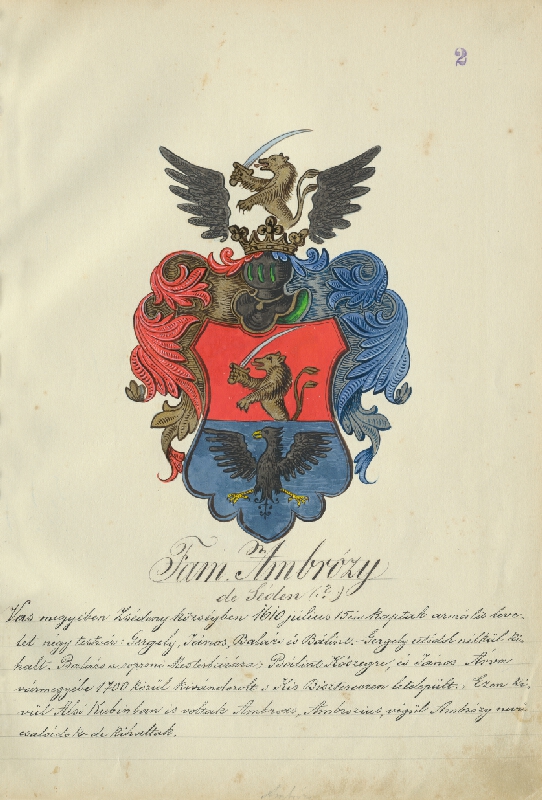 2
Fam. Ambrózy
de Séden (?)
Vas megyében Zsédeny községben 1610 július 15én kaptak armális leve-
let négy testvér: Gergely, János, Balázs és Bálint. Gergely utódok nélkül ki-
halt. Balázs a soproni Mesterházára, Bálint Kőszegre, és János Árva
vármegyébe 1700 körül kivándorolt s Kis Bisztercen letelepült. Ezen kí-
vül Alsó Kubinban is voltak Ambros, Ambrosius, végül Ambrózy nevű
családok de kihaltak.